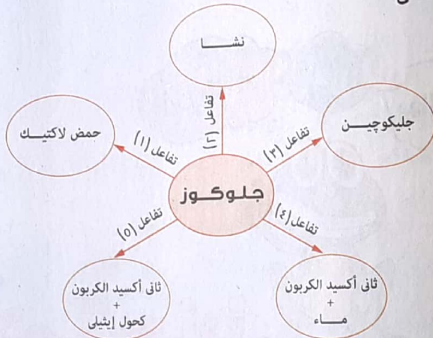 نشا
تفاعل (٢)
حمض لاكتيك
تفاعل (١)
جليكوچين
تفاعل (٣)
جلوكوز
تفاعل (٥)
تفاعل (٤)
ثانى أكسيد الكربون
+
كحول إيثيلى
ثانى أكسيد الكربون
+
ماء